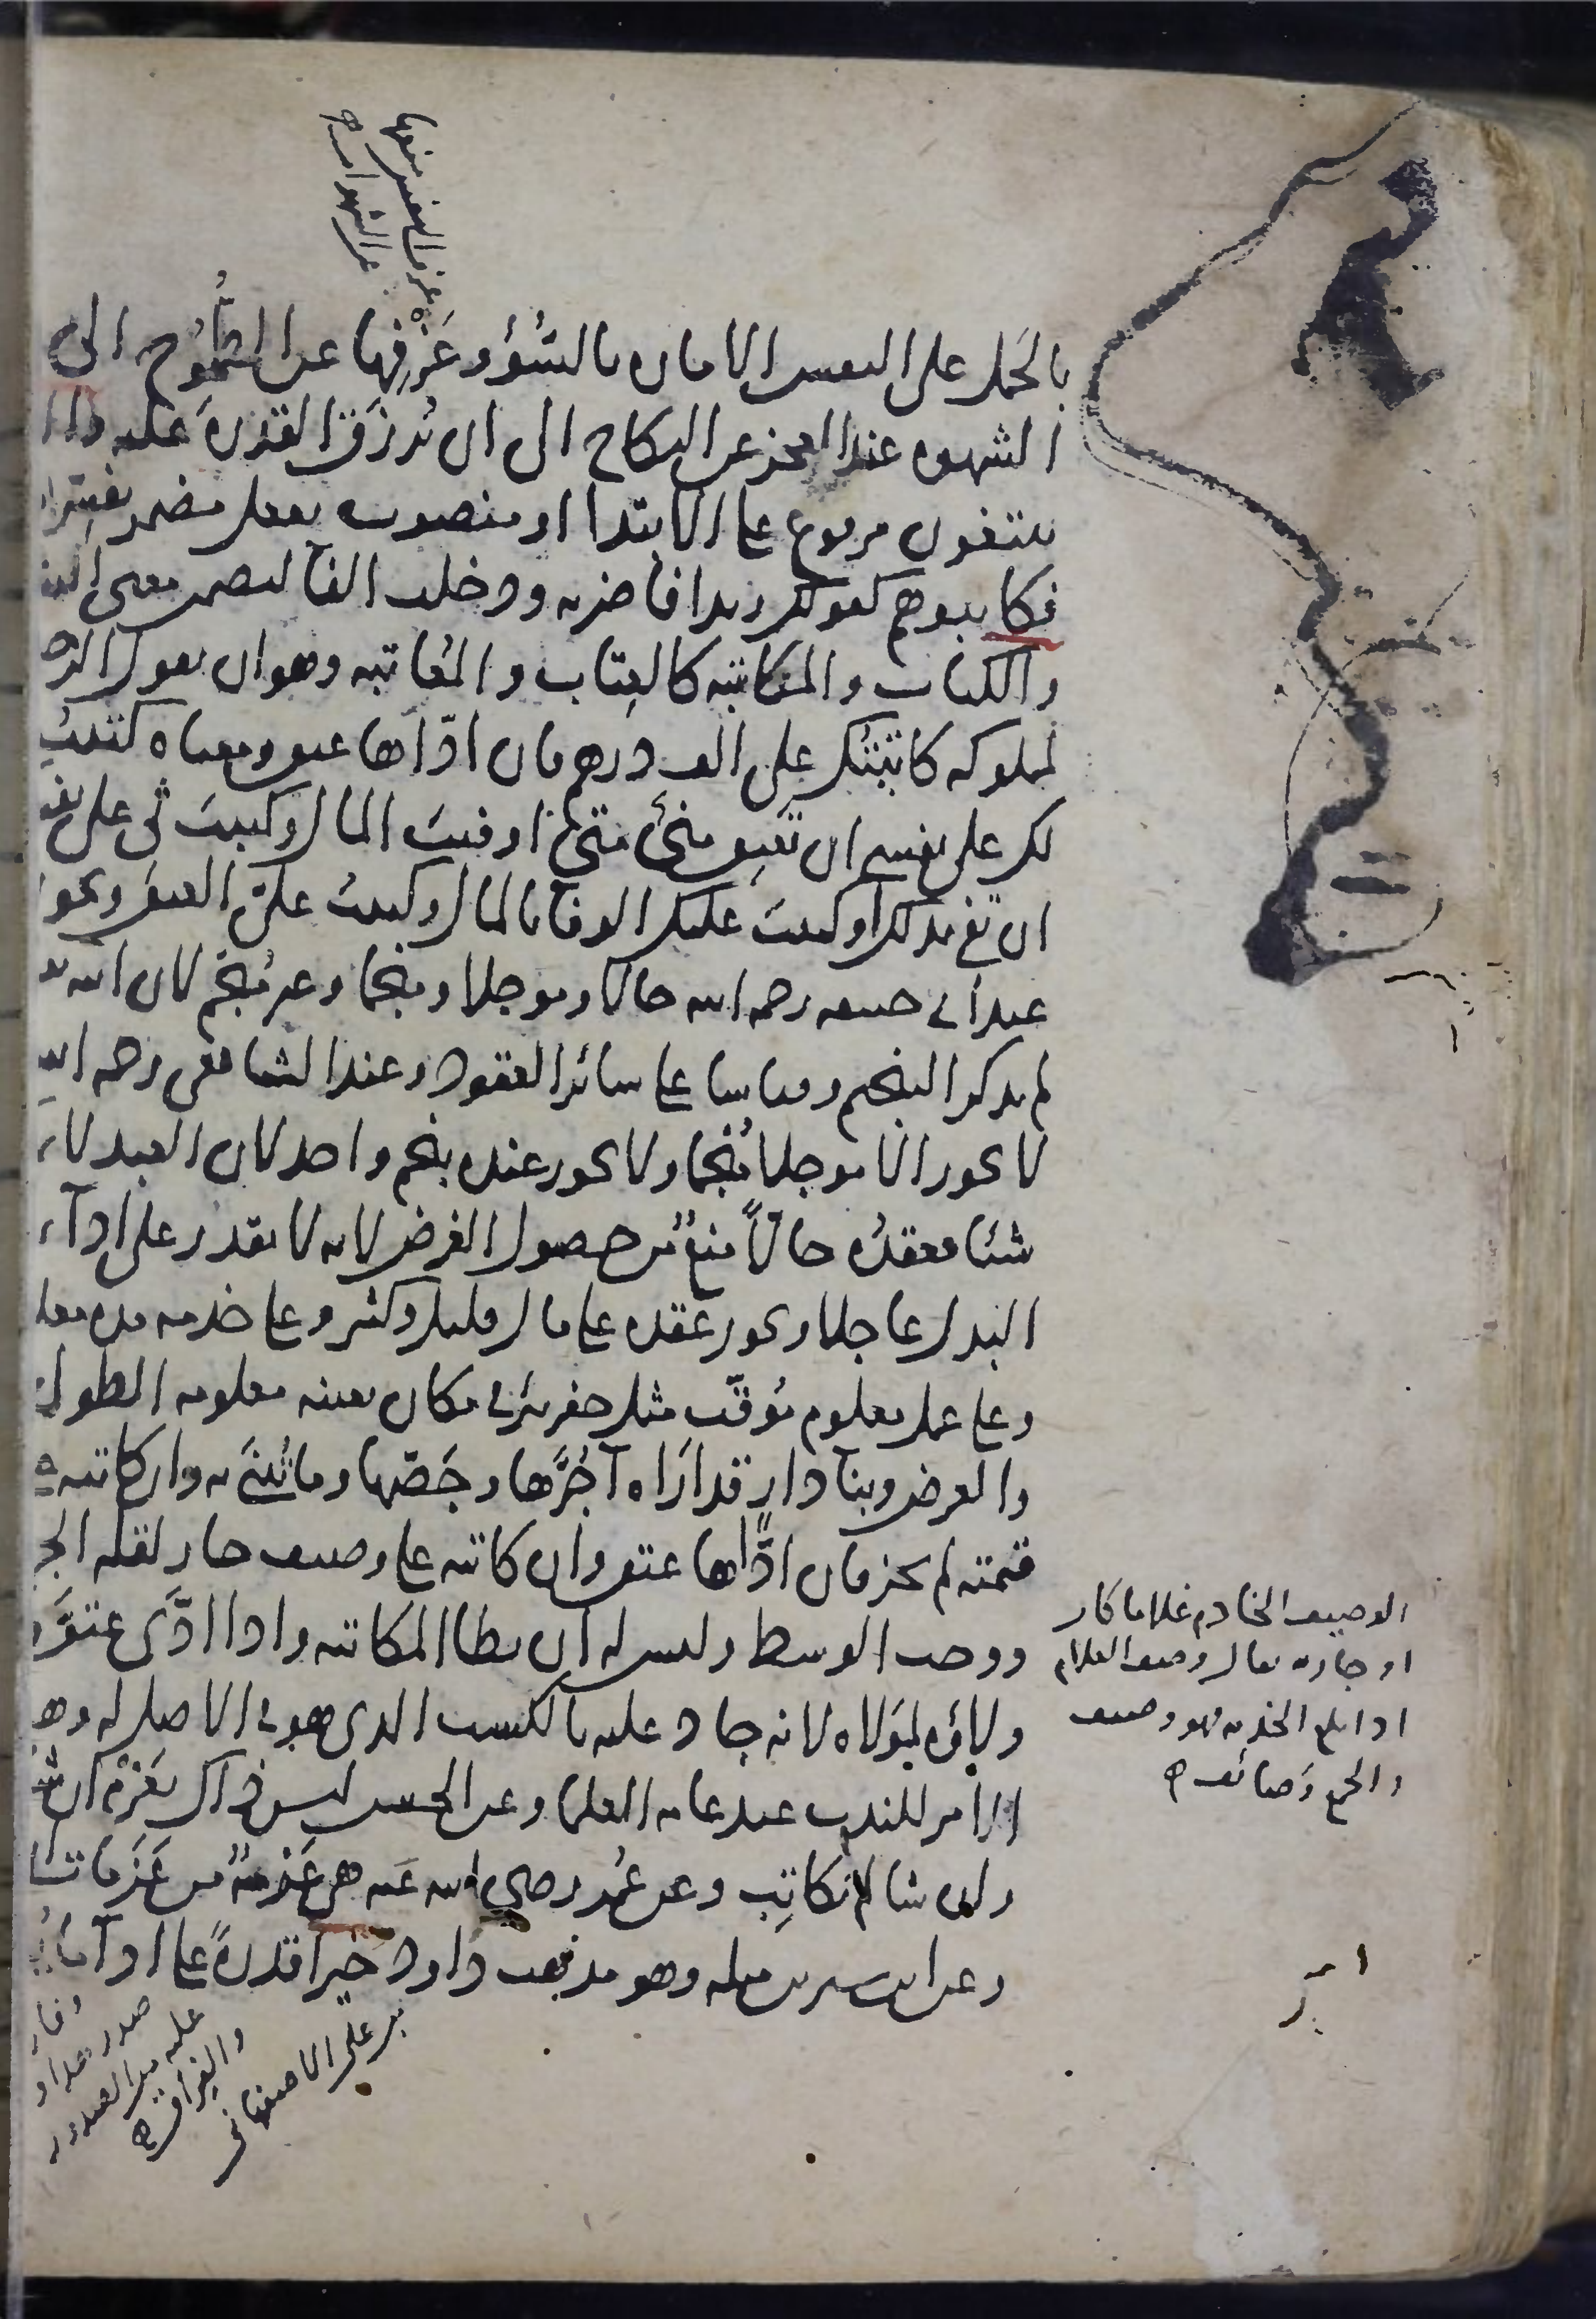 عزف النفس منعها
عن الشهوات
بالحمل على النفس الامارة بالسوء وعزفها عن الطموح الى
الشهوة عند العجز عن النكاح الى ان ترزق القدرة عليه والذين
يبتغون مرفوع على الابتدا او منصوب بفعل مضمر يفسره
فكاتبوهم كقولك زيدا فاضربه ودخلت الفا لتضمن معنى
والكتاب والمكاتبة كالعتاب والمعاتبة وهو ان يقول الرجل
لمملوكه كاتبتك على الف درهم فان اداها عتق ومعناه كتبت
لك على نفسي ان تعتق مني متى اوفيت المال وكتبت لي على نفسك
ان تفي بذلك او كتبت عليك الوفا بالمال وكتبت علي العتق ويجوز
عند ابي حنيفة رحمه الله حالا وموجلا ومنجما وغير منجم لان الله
لم يذكر التنجيم وقياسا على سائر العقود وعند الشافعي رحمه الله
لا يجوز الا موجلا منجما ولا يجوز عنده بنجم واحد لان العبد لا
شئا فعقده حالا منع من حصول الغرض لانه لا يقدر على اداء
البدل عاجلا ويجوز عقده على مال قليل وكثير وعلى خدمه مده
وعلى عمل معلوم موقت مثل حفر بئر في مكان بعينه معلومه الطول
والعرض وبنا دار قد اراه آجرها وجصها وما تبنى به وان كاتبه
قيمته لم يجز فان اداها عتق وان كاتبه على وصيف جاز لقله
ووجب الوسط وليس له ان يطا المكاتبه واذا ادى عتق
ولاؤه لمولاه لانه جاد عليه بالكسب الذي هو في الاصل له
الامر للندب عند عامه العلما وعن الحسن ليس ذاك بعزم ان شا
وان شا لم يكاتب وعن عمر رضي الله عنه هي عزمه من عزمات
وعن ابن سيرين مثله وهو مذهب داود خيرا قدره على ادا ما
الوصيف الخادم غلاما كان
او جاريه يقال وصف الغلام
اذا بلغ الخدمه فهو وصيف
والجمع وصائف
صدر
عليه
بن علي الاصفهاني